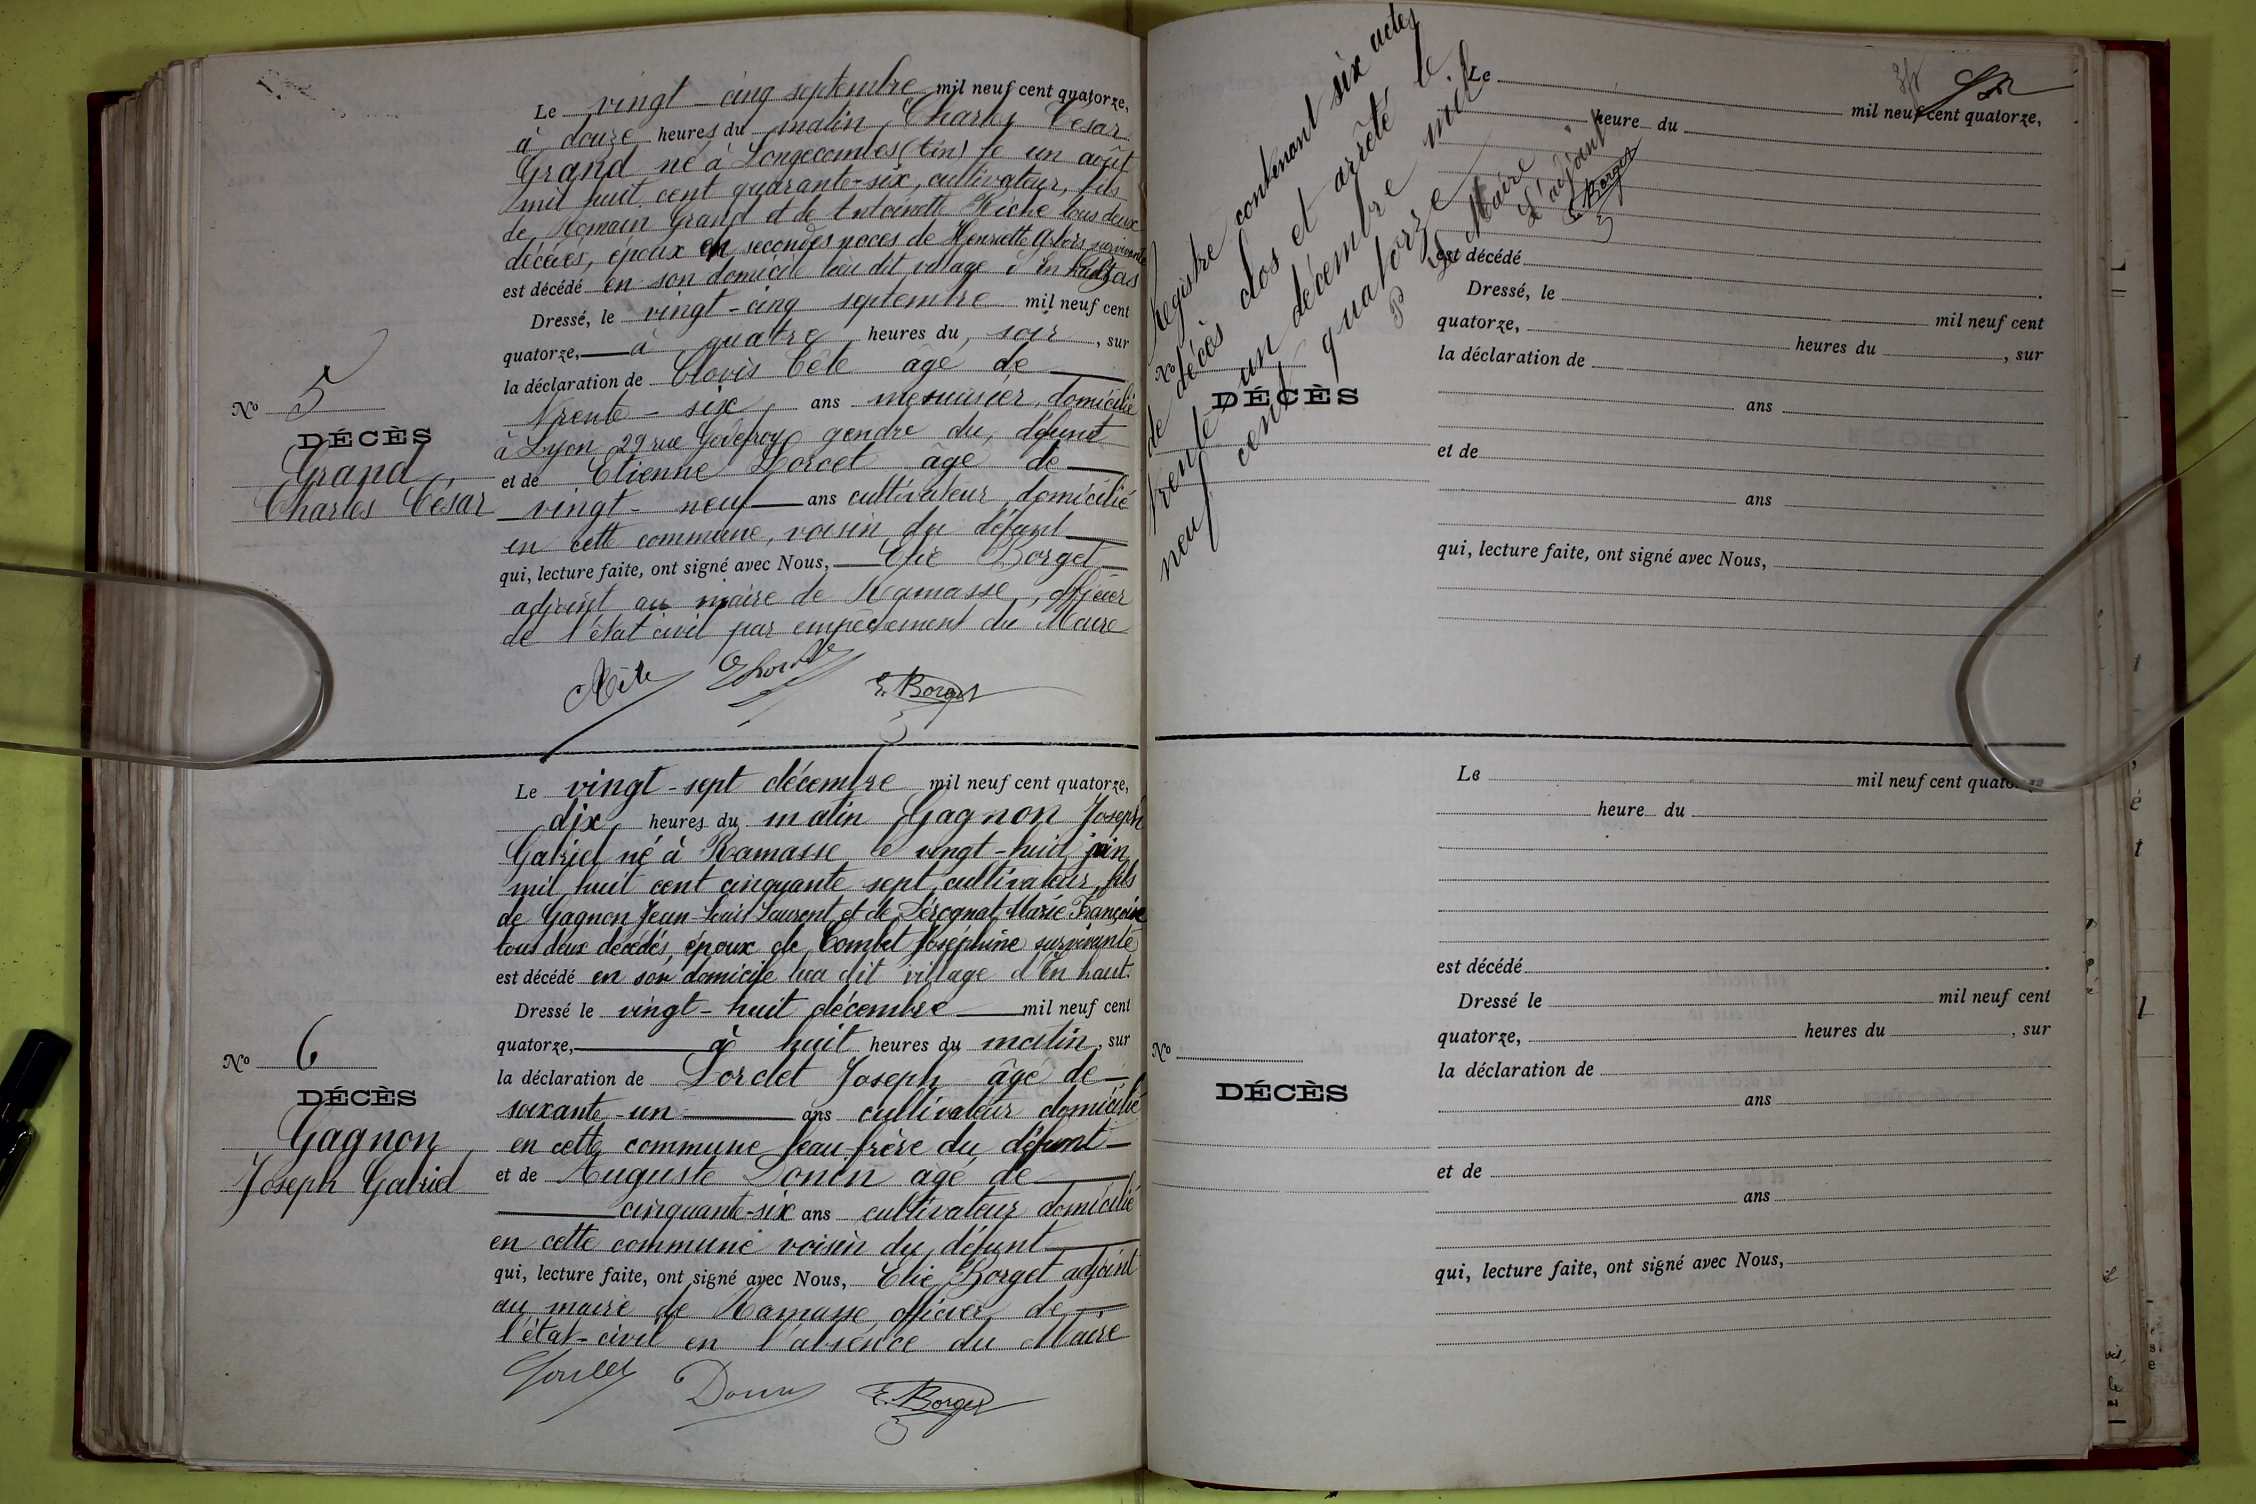 Le vingt-cinq septembre mil neuf cent quatorze,
à douze heures du matin Charles César
Grand né à Longecombes (Ain) le un août
mil huit cent quarante-six, cultivateur, fils
de Romain Grand et de Antoinette Riche tous deux
décédés, époux en secondes noces de Henriette survivante
est décédé en son domicile lieu dit village d'En bas
Dressé, le vingt-cinq septembre mil neuf cent
quatorze, à quatre heures du soir, sur
la déclaration de Clovis Cête âgé de
Trente-six ans menuisier, domicilié
à Lyon 29 rue Godefroy gendre du défunt
et de Etienne âgé de
vingt-neuf ans cultivateur, domicilié
en cette commune, voisin du défunt
qui, lecture faite, ont signé avec Nous, Elie Borget
adjoint au maire de Ramasse, officier
de l'état civil par empêchement du Maire
E. Borget
No 5
DÉCÈS
Grand
Charles César
Le vingt-sept décembre mil neuf cent quatorze,
dix heures du matin Gagnon Joseph
Gabriel né à Ramasse le vingt-huit juin
mil huit cent cinquante sept, cultivateur, fils
de Gagnon Jean-Louis Laurent et de Pérognat Marie Françoise
tous deux décédés, époux de Combet Joséphine survivante
est décédé en son domicile lieu dit village d'En haut.
Dressé le vingt-huit décembre mil neuf cent
quatorze, à huit heures du matin, sur
la déclaration de Joseph âgé de
soixante-un ans cultivateur domicilié
en cette commune beau frère du défunt
et de Auguste Donin âgé de
cinquante-six ans cultivateur domicilié
en cette commune voisin du défunt
qui, lecture faite, ont signé avec Nous, Elie Borget adjoint
au maire de Ramasse officier de
l'état-civil en l'absence du Maire
E. Borget
No 6
DÉCÈS
Gagnon
Joseph Gabriel
Registre contenant six actes
de décès clos et arrêté le
trente un décembre mil
neuf cent quatorze
P Le Maire
L'adjoint
E. Borget
Le mil neuf cent quatorze,
heure du
est décédé
Dressé, le mil neuf cent
quatorze, heures du , sur
la déclaration de
ans
et de
ans
qui, lecture faite, ont signé avec Nous,
No
DÉCÈS
Le mil neuf cent quatorze
heure du
est décédé
Dressé le mil neuf cent
quatorze, heures du , sur
la déclaration de
ans
et de
ans
qui, lecture faite, ont signé avec Nous,
No
DÉCÈS